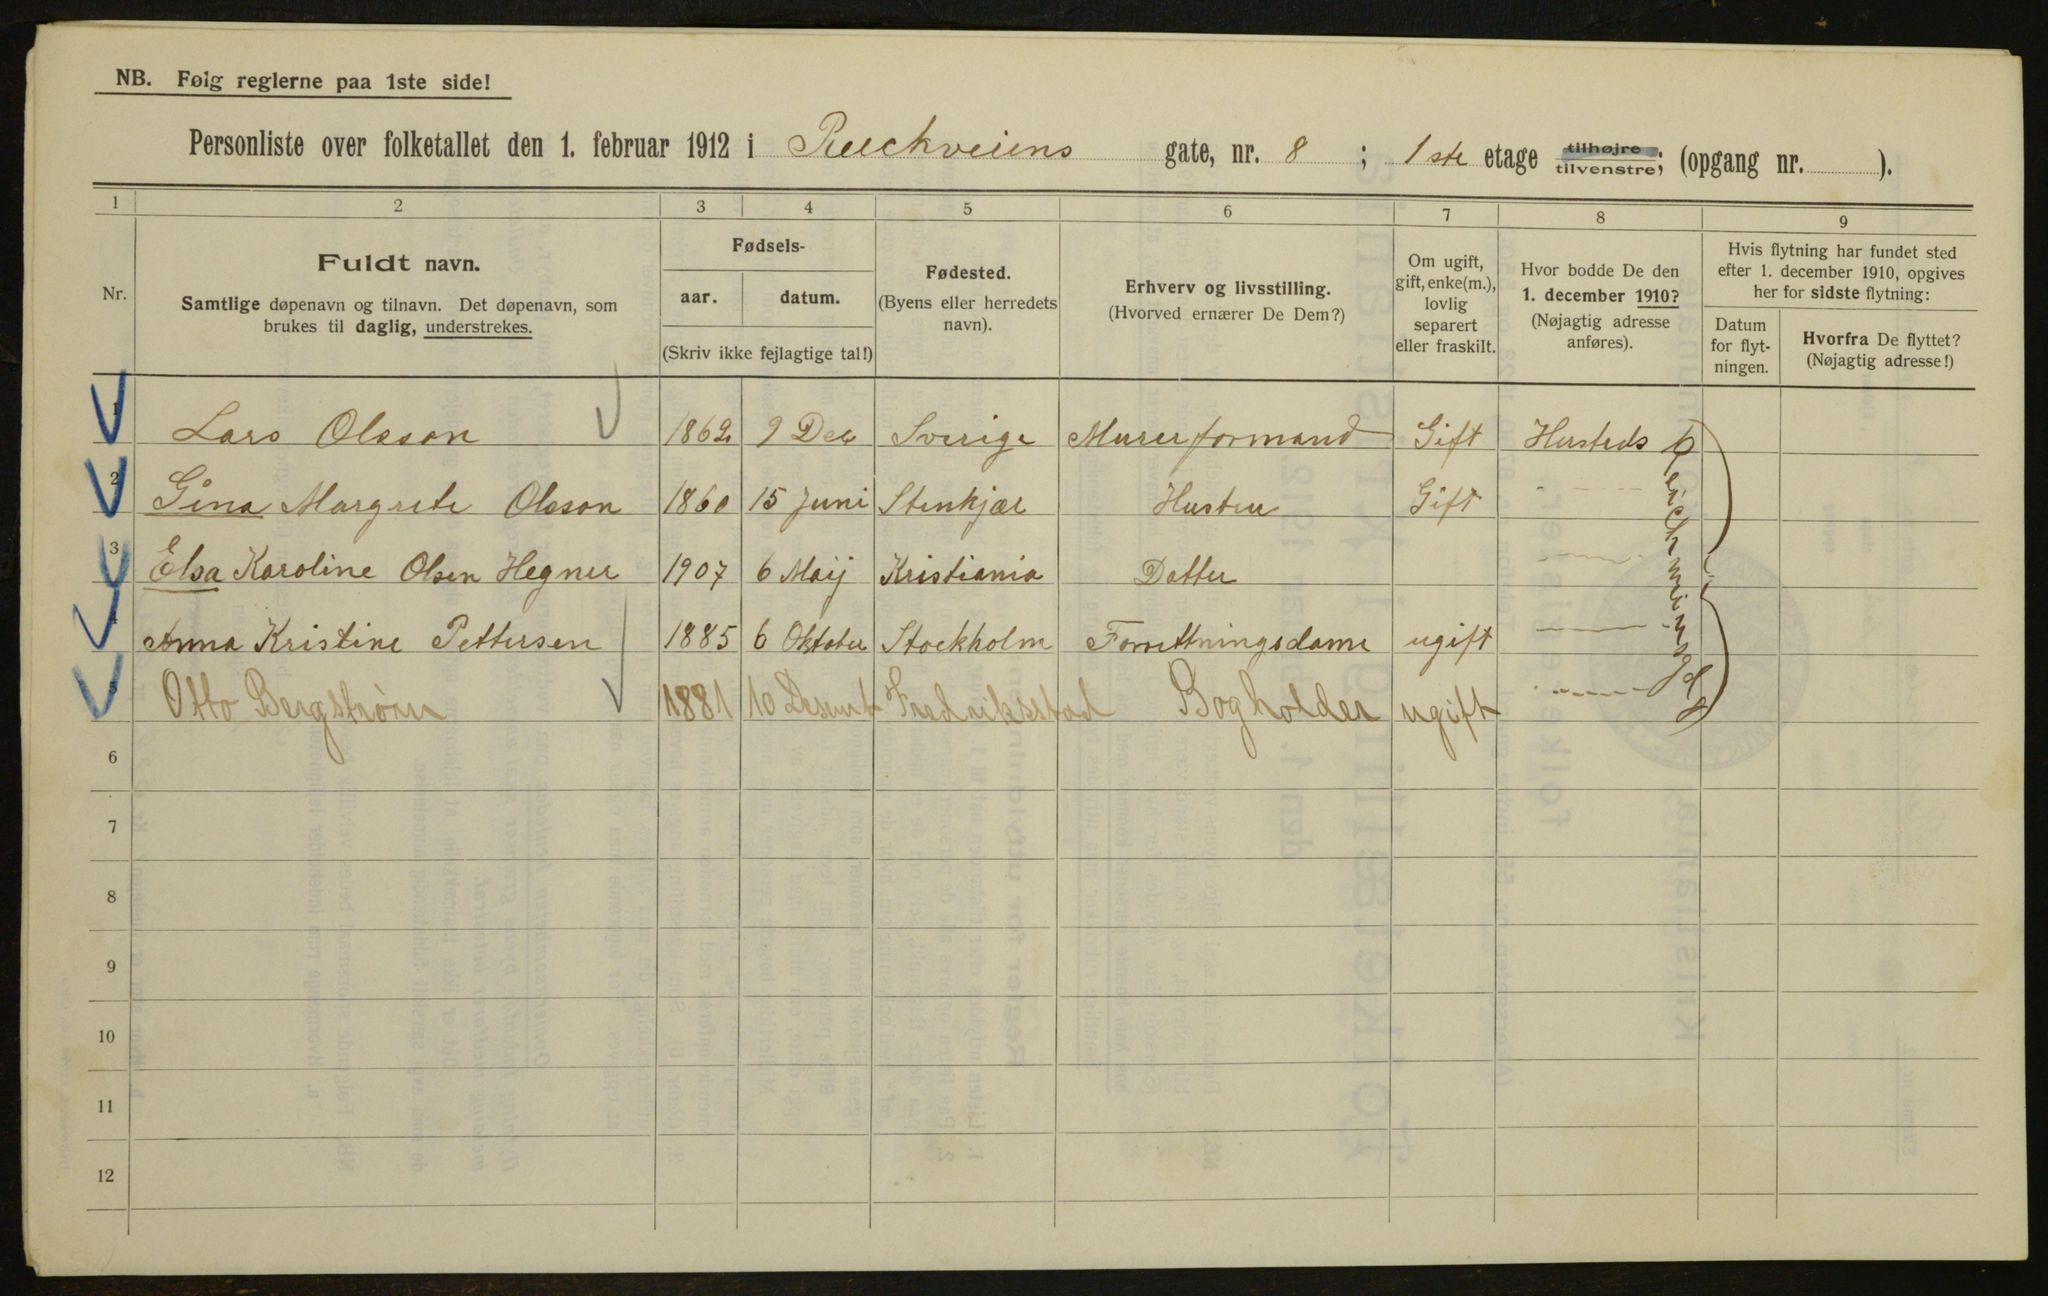 NB. Følg reglerne paa 1ste side!
Personliste over folketallet den 1. februar 1912 i Rueckveiens gate, nr. 8 ; 1ste etage tilhøjre tilvenstre; (opgang nr. ).
1 2 3 4 5 6 7 8 9
Nr.
Fuldt navn.
Samtlige døpenavn og tilnavn. Det døpenavn, som
brukes til daglig, understrekes.
Fødsels-
aar. datum.
(Skriv ikke fejlagtige tal!)
Fødested.
(Byens eller herredets
navn).
Erhverv og livsstilling.
(Hvorved ernærer De Dem?)
Om ugift,
gift, enke(m.),
lovlig
separert
eller fraskilt.
Hvor bodde De den
1. december 1910?
(Nøjagtig adresse
anføres).
Hvis flytning har fundet sted
efter 1. december 1910, opgives
her for sidste flytning:
Datum
for flyt-
ningen.
Hvorfra De flyttet?
(Nøjagtig adresse!)
1 Lars Olsson 1862 9 Dec Sverige Murerformand Gift Husteds
2 Gina Margrete Olsson 1860 15 Juni Stenkjær Hustru Gift
3 Elsa Karoline Olsen Hegner 1907 6 Maij Kristiania Datter
4 Anna Kristine Pettersen 1885 6 Oktober Stockholm Forrettningsdame ugift
5 Otto Bergstrøm 1881 10 Desemb Fredrikstad Bogholder ugift
6
7
8
9
10
11
12